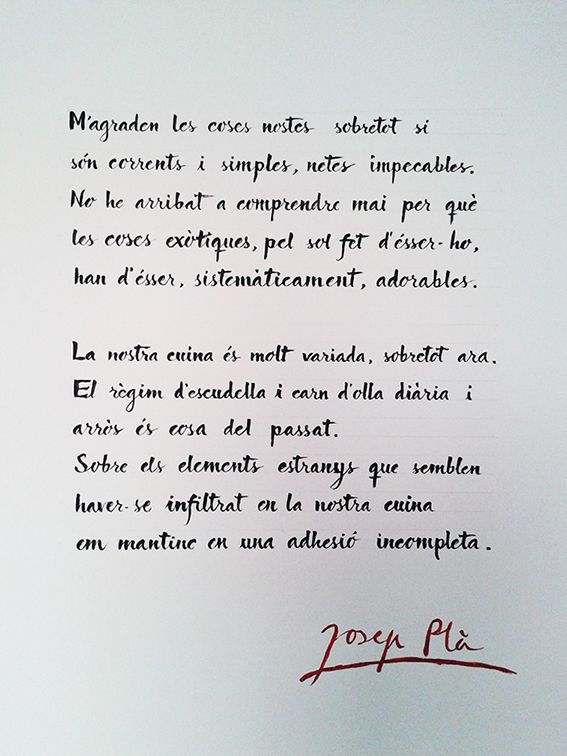 M'agraden les coses nostes sobretot si
són corrents i simples, netes impecables.
No he arribat a comprendre mai per què
les coses exòtiques, pel sol fet d'ésser-ho,
han d'ésser, sistemàticament, adorables.
La nostra cuina és molt variada, sobretot ara.
El règim d'escudella i carn d'olla diària i
arròs és cosa del passat.
Sobre els elements estranys que semblen
haver-se infiltrat en la nostra cuina
em mantinc en una adhesió incompleta.
Josep Plà